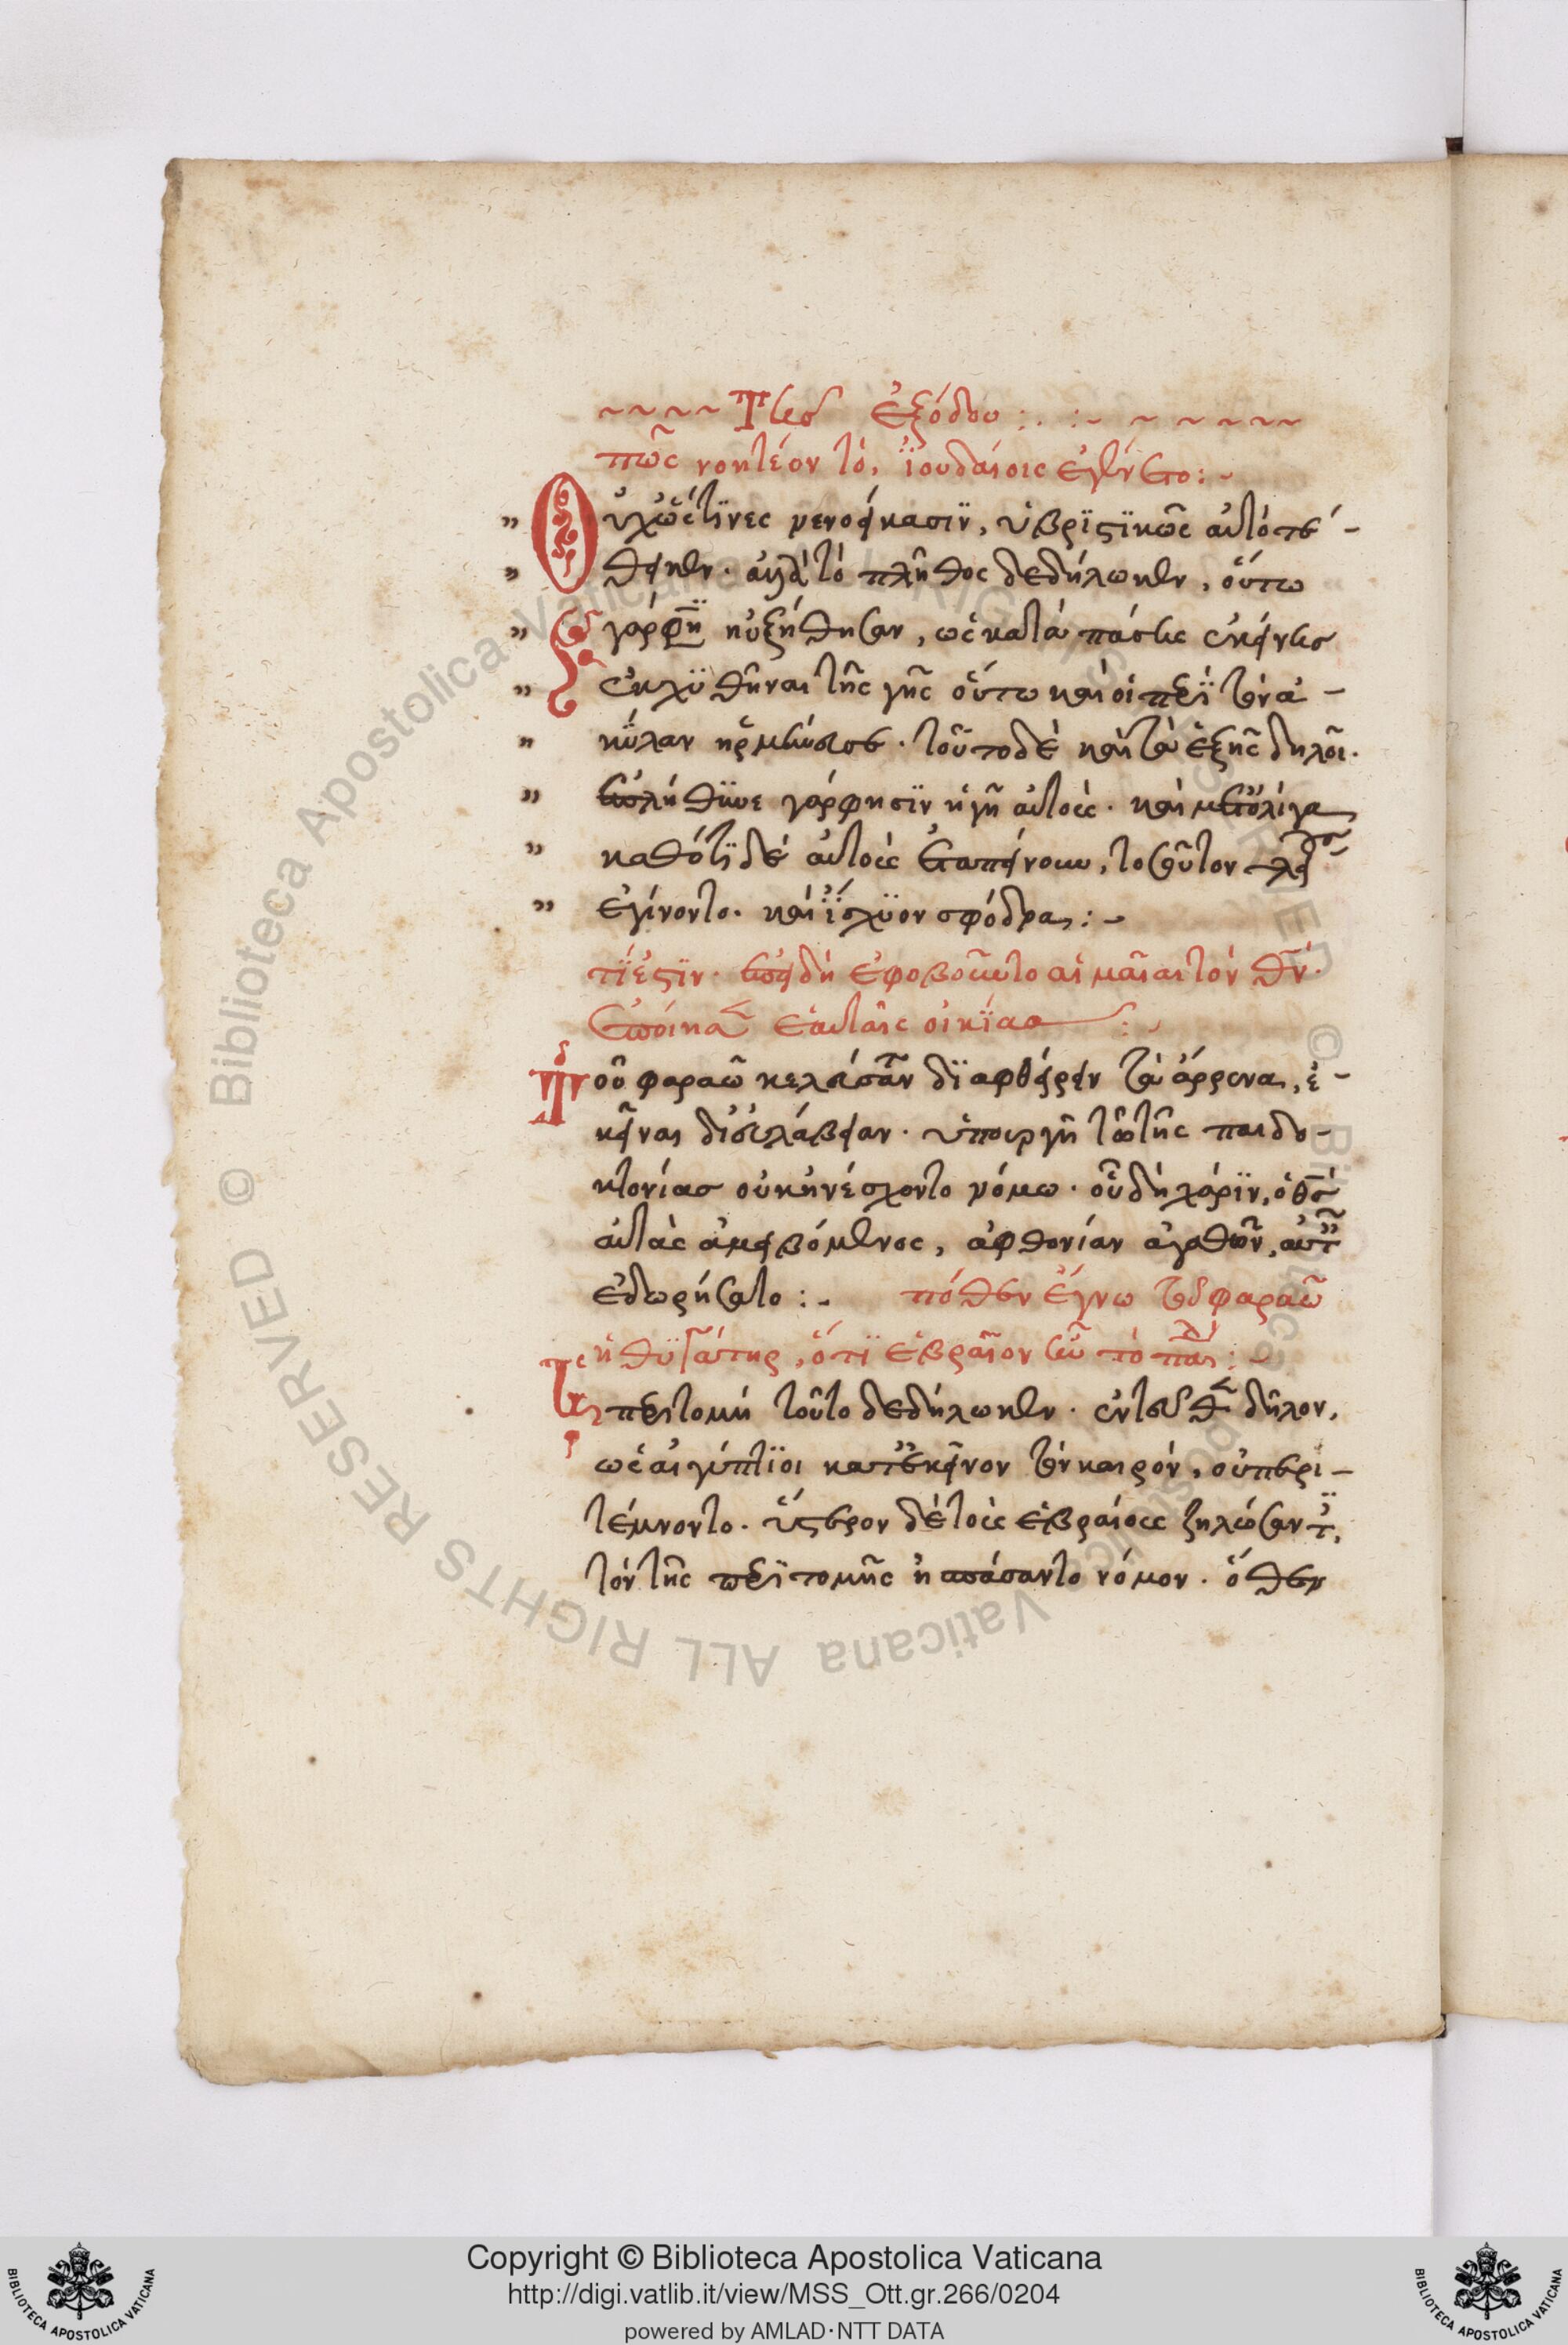 ~~~~ Περὶ ἐξόδου :. :- ~ ~ ~ ~ ~
πῶς νοητέον τὸ, ϊουδαίοις ἐγένετο :-
Οὐχ ὥς τϊνες νενοήκασϊν, ὑβρϊστϊκῶς αὐτὸ τέ-
θηκεν. ἀλλὰ τὸ πλῆθος δεδήλωκεν, οὕτω
γάρ φησϊ ηὐξήθησαν, ὡς κατὰ πάσης ἐκείνης
ἐκχϋθῆναι τῆς γῆς οὕτω καὶ οἱ περὶ τὸν ἀ-
κύλαν ἡρμήνευσαν. τοῦτο δὲ καὶ τὰ ἑξῆς δηλοῖ.
ἐπλήθϋνε γάρ φησϊν ἡ γῆ αὐτοὺς. καὶ μετ' ὀλίγα
καθότϊ δὲ αὐτοὺς ἐταπείνουν, τοσοῦτον πλείους
ἐγίνοντο. καὶ ἴσχϋον σφόδρα :-
τί ἐστϊν. ἐπειδὴ ἐφοβοῦντο αἱ μαῖαι τὸν θν.
ἐποίησαν ἑαυταῖς οἰκίας :-
Τοῦ φαραὼ κελεύσαντος δϊαφθείρειν τὰ ἄρρενα, ἐ-
κεῖναι δι' εὐλάβειαν. ὑπουργῆσαι τῷ τῆς παιδο-
κτονίας οὐκ ἠνέσχοντο νόμω. οὗ δὴ χάρϊν, ὁ θς
αὐτὰς ἀμειβόμενος, ἀφθονίαν ἀγαθῶν, αὐταῖς
ἐδωρήσατο :- πόθεν ἔγνω τοῦ φαραὼ
ἡ θϋγάτηρ, ὅτϊ ἑβραῖον ἦν τὸ παιδίον :-
Ἡ περιτομὴ τοῦτο δεδήλωκεν. ἐντεῦθεν δῆλον,
ὡς αἰγύπτϊοι κατ' ἐκεῖνον τὸν καιρόν, οὐ περι-
τέμνοντο. ὕστερον δὲ τοὺς ἑβραίους ζηλώσαντες,
τὸν τῆς περϊτομῆς ἠσπάσαντο νόμον. ὅθεν
Copyright © Biblioteca Apostolica Vaticana
http://digi.vatlib.it/view/MSS_Ott.gr.266/0204
powered by AMLAD·NTT DATA
BIBLIOTECA APOSTOLICA VATICANA
BIBLIOTECA APOSTOLICA VATICANA